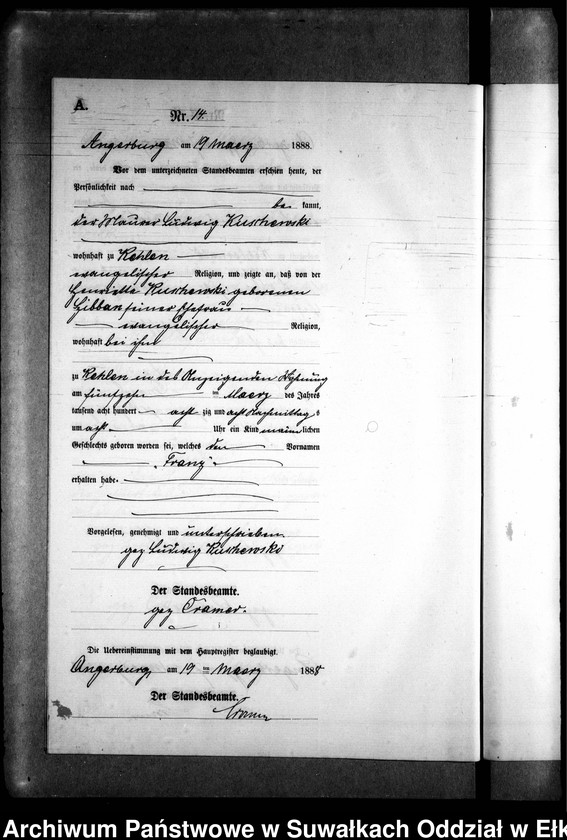 A.
Nr. 14.
Angerburg am 19 Maerz 1888.
Vor dem unterzeichneten Standesbeamten erschien heute, der
Persönlichkeit nach
be kannt,
der Maurer Ludwig Kuschewski
wohnhaft zu Kehlen
evangelischer Religion, und zeigte an, daß von der
Henriette Kuschewski geborenen
seiner Ehefrau
evangelischer Religion,
wohnhaft bei ihm
zu Kehlen in des Anzeigenden Wohnung
am fünfzehn ten Maerz des Jahres
tausend acht hundert acht zig und acht Nachmittags
um acht Uhr ein Kind männlichen
Geschlechts geboren worden sei, welches den Vornamen
„Franz“
erhalten habe.
Vorgelesen, genehmigt und unterschrieben
gez Ludwig Kuschewski
Der Standesbeamte.
gez Cramer.
Die Uebereinstimmung mit dem Hauptregister beglaubigt.
Angerburg, am 19 ten Maerz 1888
Der Standesbeamte.
Cramer
Archiwum Państwowe w Suwałkach Oddział w Ełk